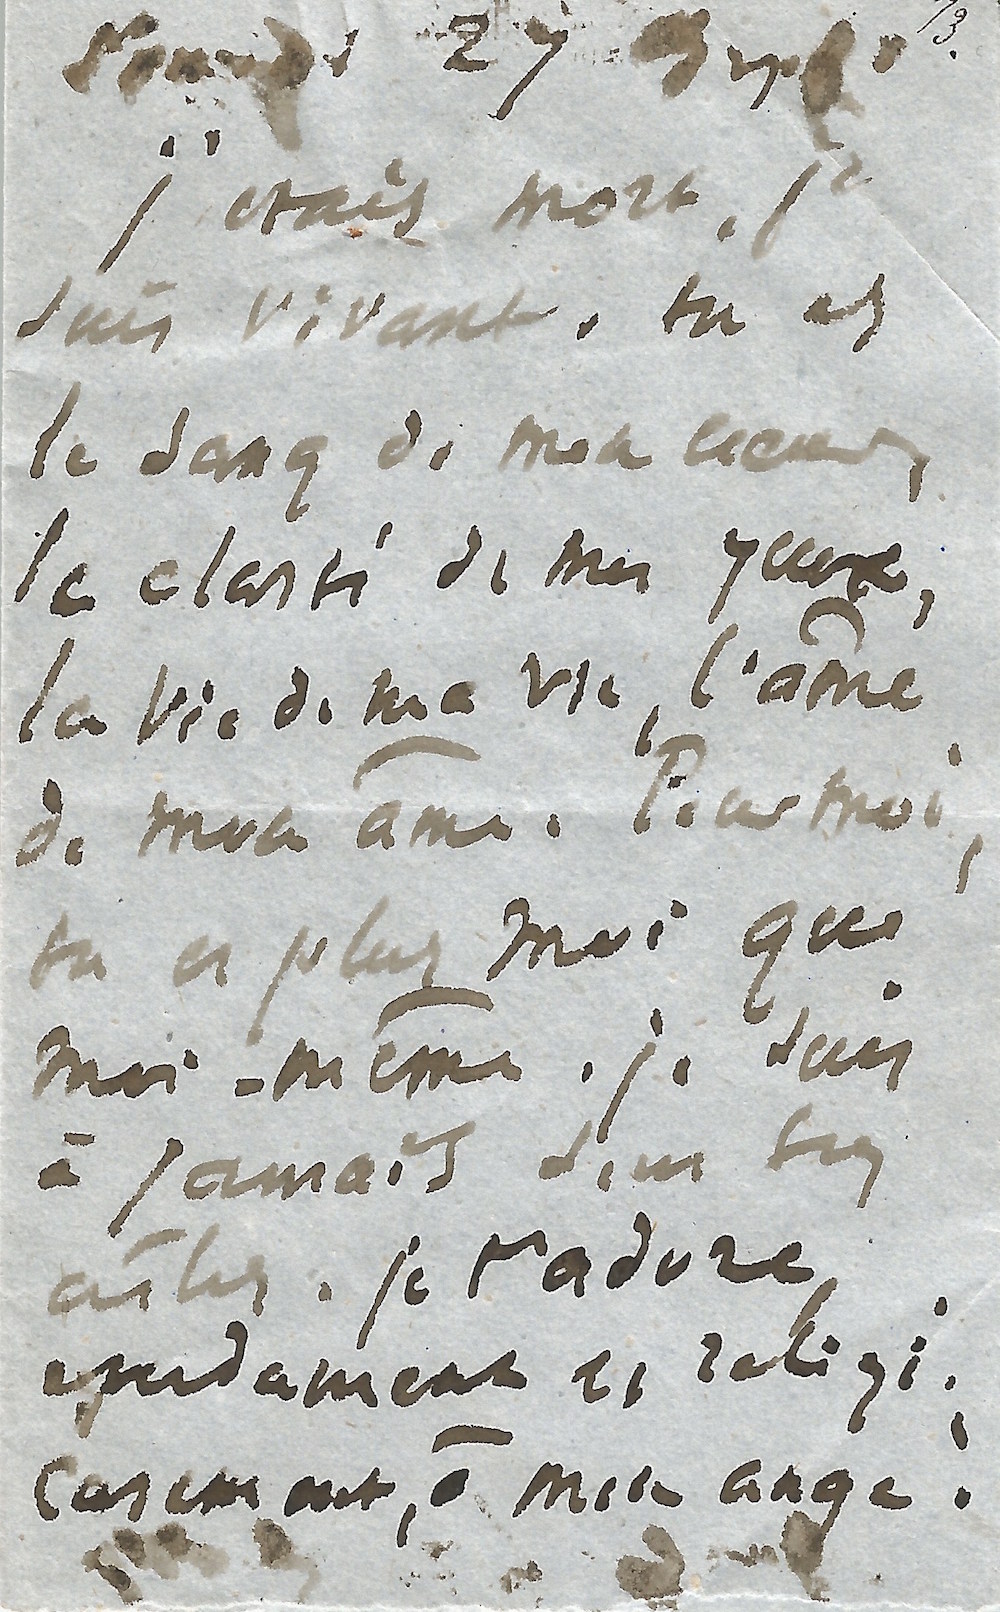 27 73.
j'étais mort, je
suis vivant. tu es
le sang de mon cœur,
la clarté de mes yeux,
la vie de ma vie, l'âme
de mon âme. Pour moi,
tu es plus moi que
moi-même. je suis
à jamais dans tes
ailes. je t'adore
éperdument et religi-
eusement, ô mon ange!